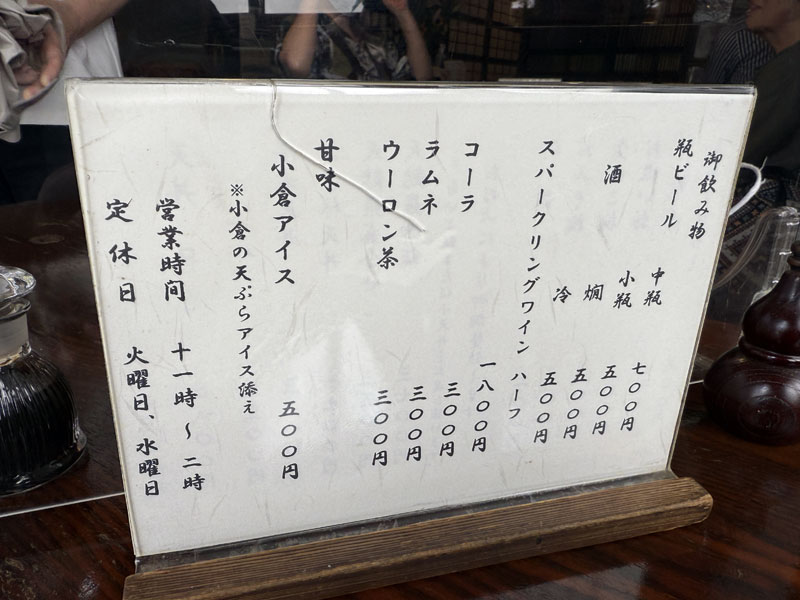 御飲み物
瓶ビール 中瓶 七〇〇円
小瓶 五〇〇円
酒 燗 五〇〇円
冷 五〇〇円
スパークリングワイン ハーフ 一八〇〇円
コーラ 三〇〇円
ラムネ 三〇〇円
ウーロン茶 三〇〇円
甘味
小倉アイス 五〇〇円
※小倉の天ぷらアイス添え
営業時間 十一時～二時
定休日 火曜日、水曜日